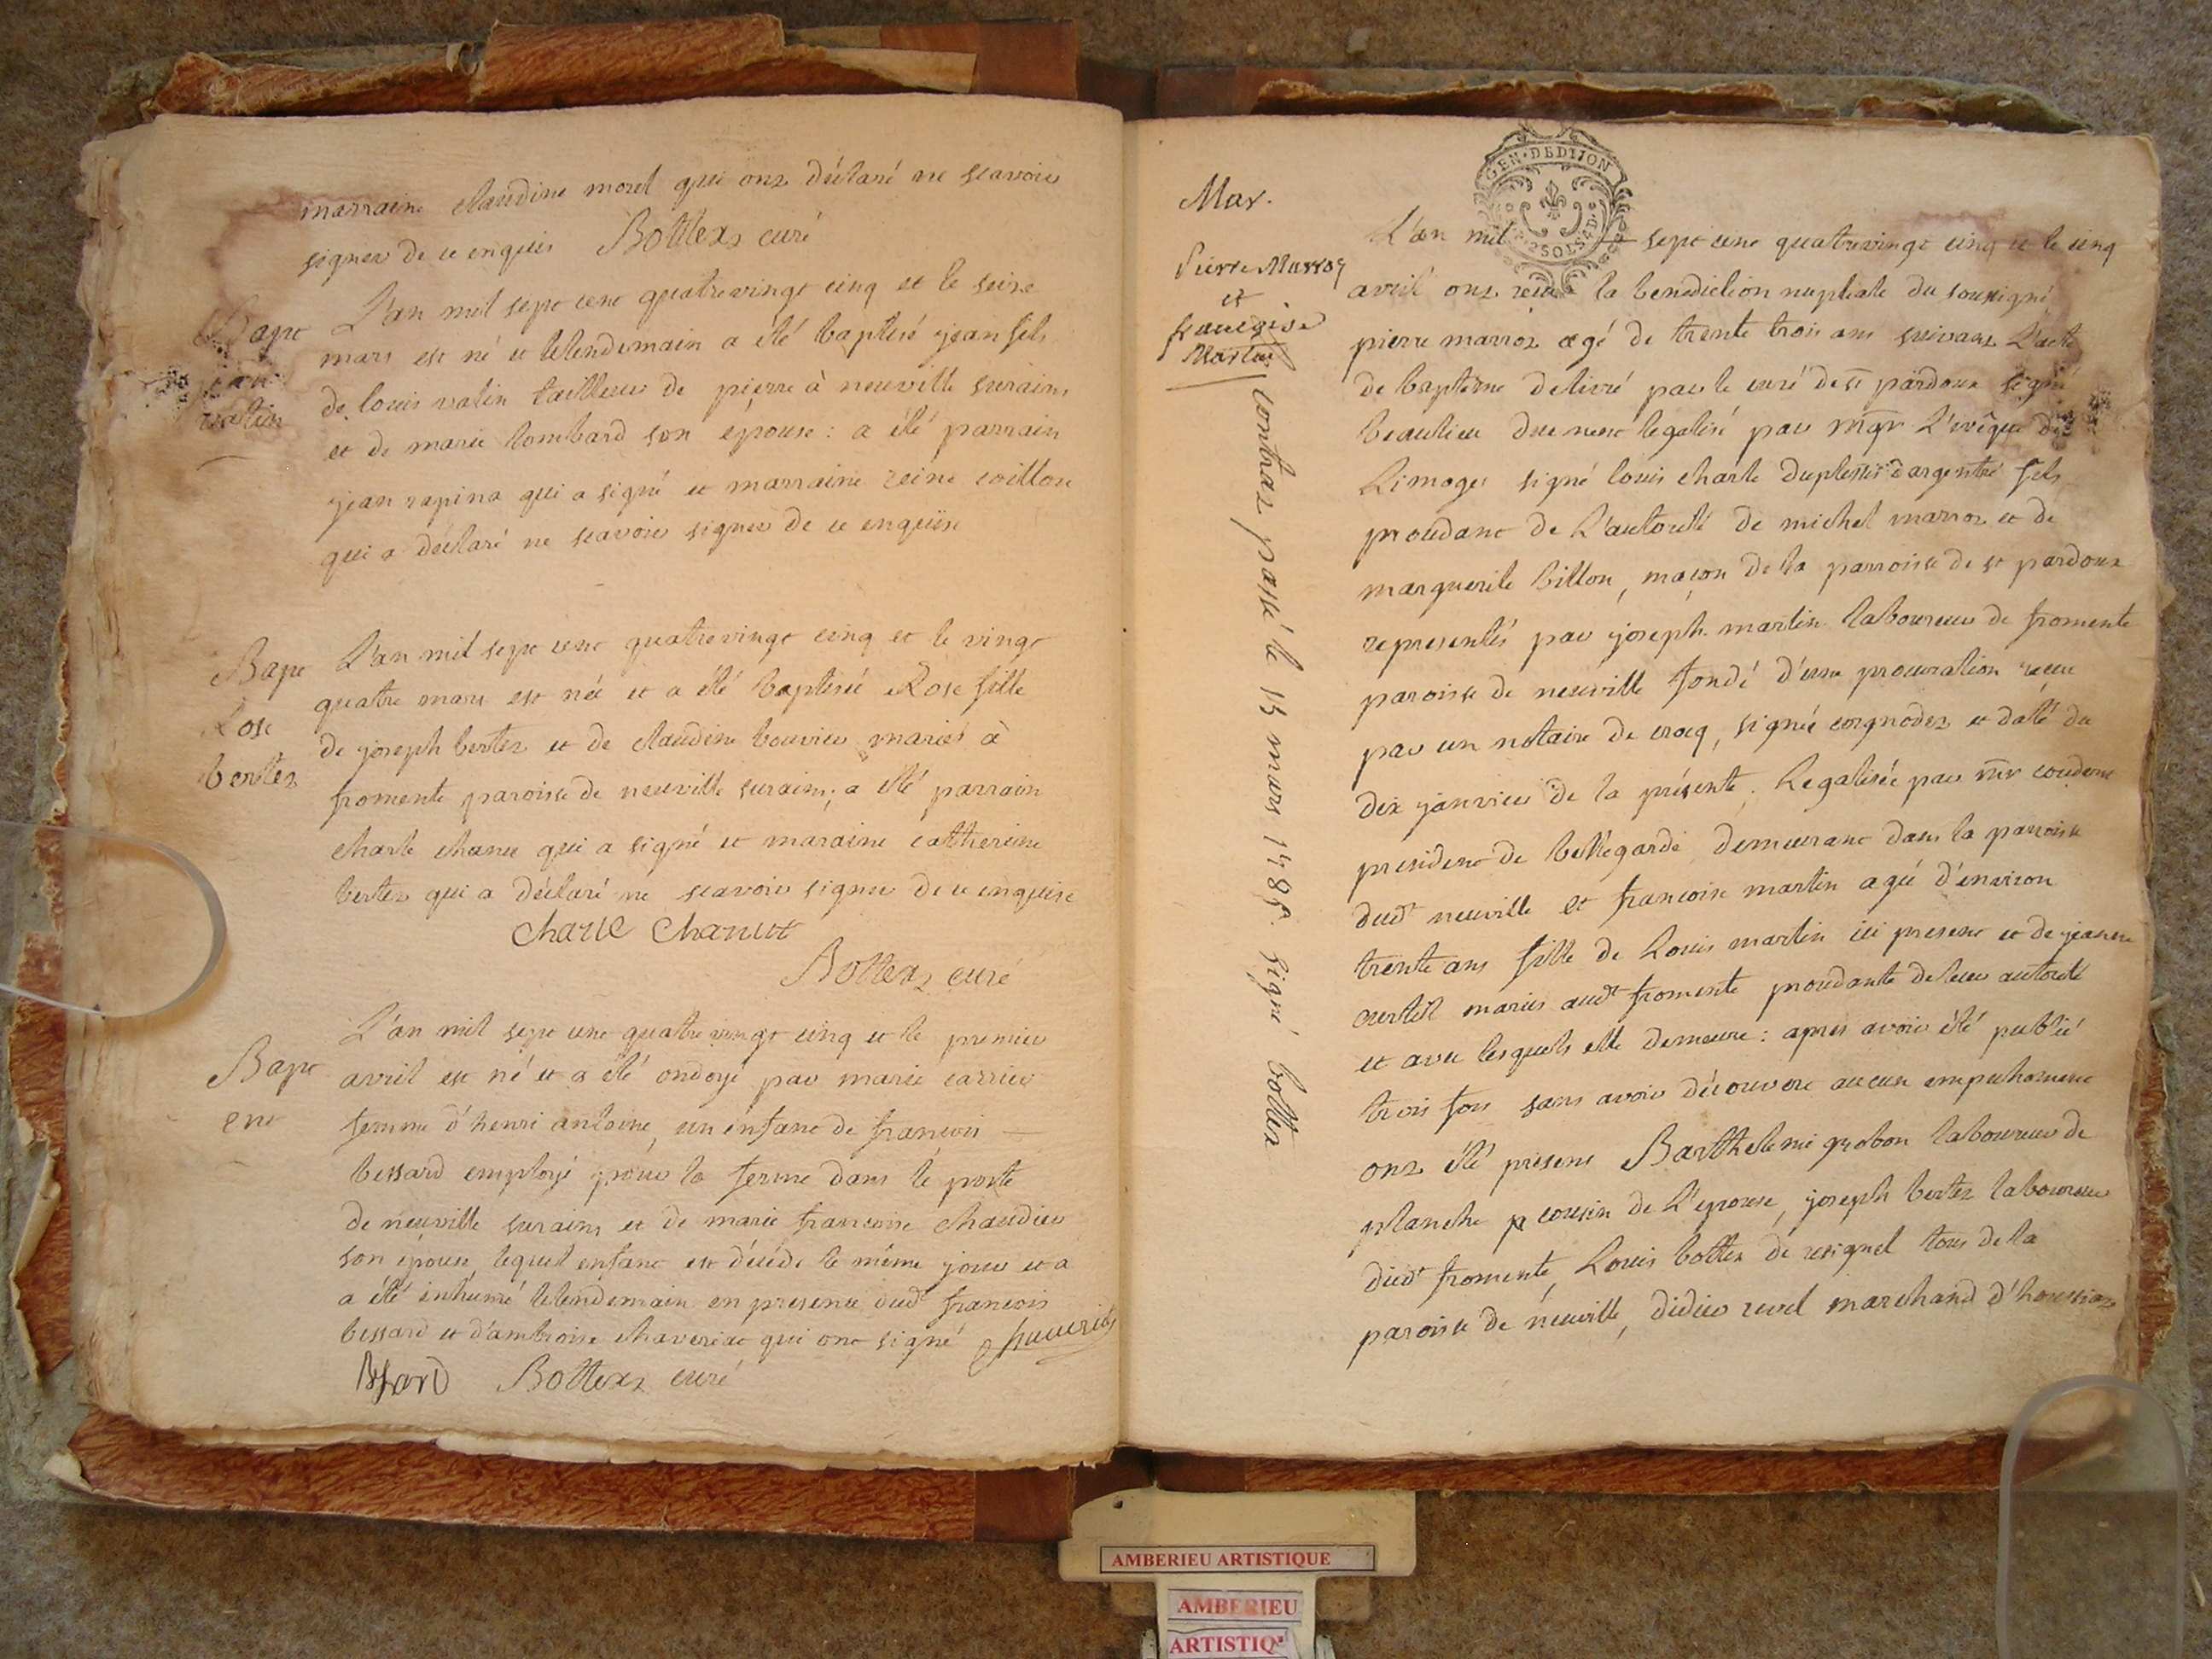 marraine claudine morel qui onz déclaré ne scavoir
signer de ce enquis Bottex curé
Bapt
jean
vatin
L'an mil sept cent quatrevingt cinq et le seize
mars est né et le lendemain a été baptisé jean fils
de louis vatin tailleur de pierre à neuville surains
et de marie lombard son épouse : a été parrain
jean rapina qui a signé et marraine reine coillon
qui a déclaré ne scavoir signer de ce enquise
Bapt
Rose
berter
L'an mil sept cent quatrevingt cinq et le vingt
quatre mars est née et a été baptisée Rose fille
de joseph berter et de claudine bouvier mariés à
fromente paroisse de neuville surains ; a été parrain
charle chanut qui a signé et maraine catherine
berter qui a déclaré ne scavoir signer de ce enquise
charle Chanut
Bottex curé
Bapt
ent
L'an mil sept cent quatrevingt cinq et le premier
avril est né et a été ondoyé par marie carrier
femme d'henri antoine, un enfant de francois
bessard employé pour la ferme dans le poste
de neuville surains et de marie francoise chaudier
son épouse, lequel enfant est décédé le même jour et a
a été inhumé le lendemain en presence dudt francois
bessard et d'ambroise chaveriat qui ont signé
Bessard Bottex curé
GEN·DEDIJON
Mar.
Pierre Marroz
et
francoise
Martin
contraz passé le 13 mars 1785. signé bottex
L'an mil sept cent quatrevingt cinq et le cinq
avril onz recue la benediction nuptiale du soussigné
pierre marroz agé de trente trois ans suivant L'acte
de baptême delivré par le curé de st pardoux signé
beaulieu duement legalisé par mgr L'evêque de
Limoges signé louis charle duplessis d'argentré fils
proudant de L'autorité de michel marroz et de
marguerite billon, maçon de la parroisse de st pardoux
representés par joseph martin laboureur de fromente
paroisse de neuville fondé d'une procuration recue
par un notaire de crocq, signée corgnodez et daté du
dix janvier de la présente. Legalisée par mr couderc
president de bellegarde demeurant dans la parroisse
dudt neuville et francoise martin agée d'environ
trente ans fille de Louis martin ici present et de jeanne
curtil mariés audt fromente proudante de leur autorité
et avec lesquels elle demeure : apres avoir été publié
trois fois sans avoir découvert aucun empechement
onz été presens Barthelemi grobon laboureur de
planche cousin de L'epouse, joseph berter laboureur
dudt fromente, Louis bottex de resignel tous de la
paroisse de neuville, didier revel marchand
AMBERIEU ARTISTIQUE
AMBERIEU
ARTISTIQ